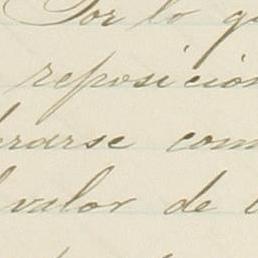 Por lo q
reposición
erarse com
valor de